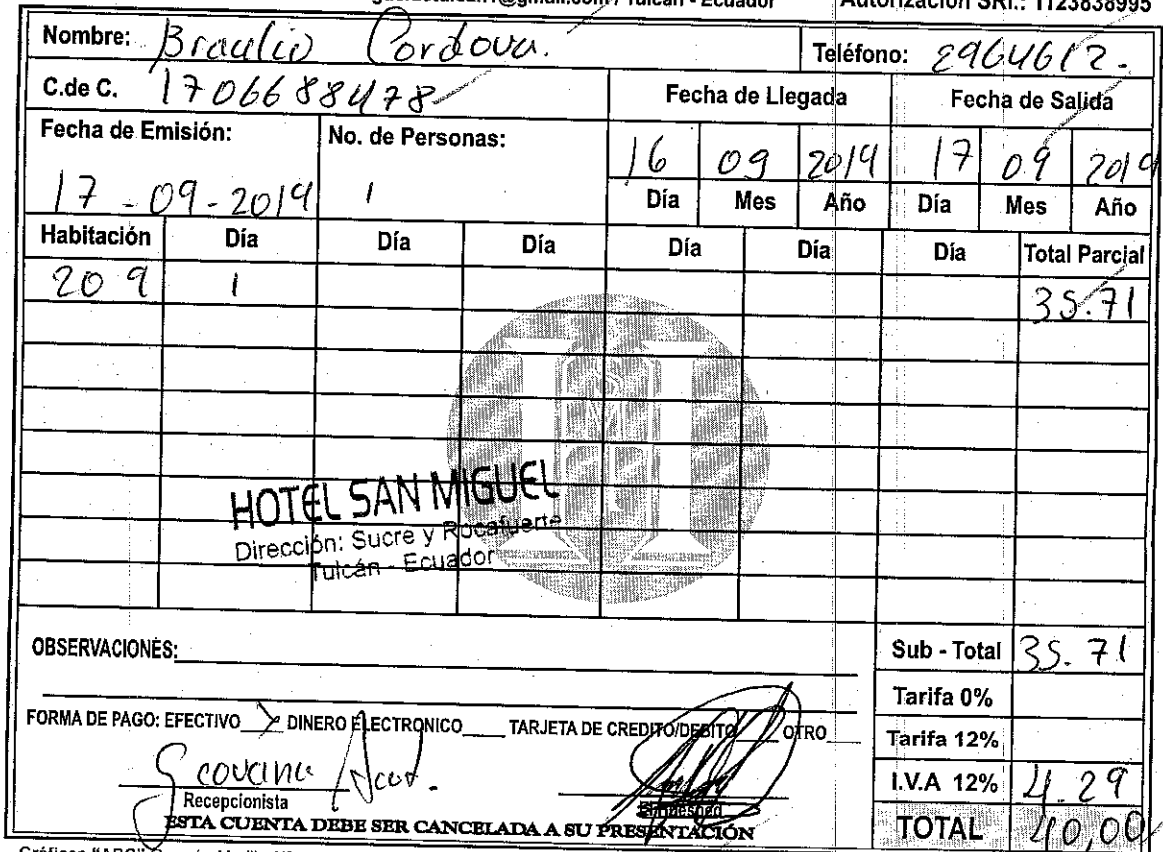 Tulcán - Ecuador Autorización SRI.: 1123838995
Nombre: Braulio Cordova. Teléfono: 2964612.
C.de C. 1706688478 Fecha de Llegada Fecha de Salida
Fecha de Emisión: No. de Personas:
17-09-2019 1 16 09 2019 17 09 2019
Día Mes Año Día Mes Año
Habitación Día Día Día Día Día Día Total Parcial
209 1 35.71
HOTEL SAN MIGUEL
Dirección: Sucre y Rocafuerte
Tulcán - Ecuador
OBSERVACIONES: Sub - Total 35.71
Tarifa 0%
FORMA DE PAGO: EFECTIVO X DINERO ELECTRONICO TARJETA DE CREDITO/DEBITO OTRO
Tarifa 12%
I.V.A 12% 4.29
Recepcionista
ESTA CUENTA DEBE SER CANCELADA A SU PRESENTACIÓN
TOTAL 40,00